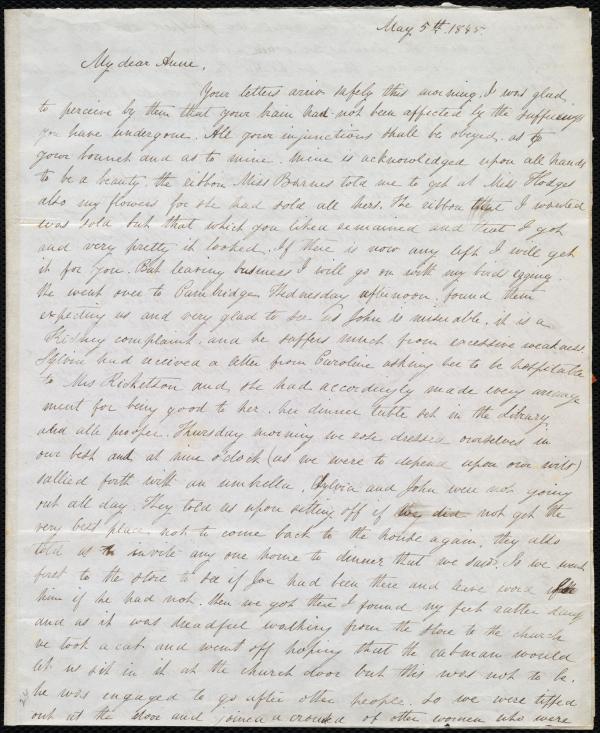 May 5th. 1845
My dear Anne,
Your letters arriv safely this morning. I was glad
to perceive by them that your brain had not been affected by the sufferings
you have undergone. All your injunctions shall be obeyed. as to
your bonnet and as to mine. mine is acknowledged upon all hands
to be a beauty. the ribbon Miss Barnes told me to get at Miss Hodges
also my flowers for she had sold all hers. The ribbon that I wanted
was sold but that which you liked remained and that I got
and very pretty it looked. If there is now any left I will get
it for you. But leaving business I will go on with my
We went over to Cambridge Wednesday afternoon, found them
expecting us and very glad to see us John is miserable. it is a
Kidney complaint. and he suffers much from excessive weakness.
Sylvia had received a letter from Caroline asking her to be hospitable
to Mrs Ricketson and she had accordingly made every arrange
ment for being good to her. her dinner table set in the Library
and all proper. Thursday morning we rose dressed ourselves in
our best and at nine o'clock (as we were to depend upon our wits)
sallied forth with an umbrella. Sylvia and John were not going
out all day. They told us upon setting off if we did not get the
very best place not to come back to the house again. they also
told us to invite any one home to dinner that we saw. So we went
first to the store to see if Joe had been there and leave word for
him if he had not. then we got there I found my feet rather damp
and as it was dreadful walking from the store to the church
we took a cab and went off hoping that the cabman would
let us sit in it at the church door but this was not to be.
he was engaged to go after other people. so we were tipped
out at the door and joined a crowd of other women who were